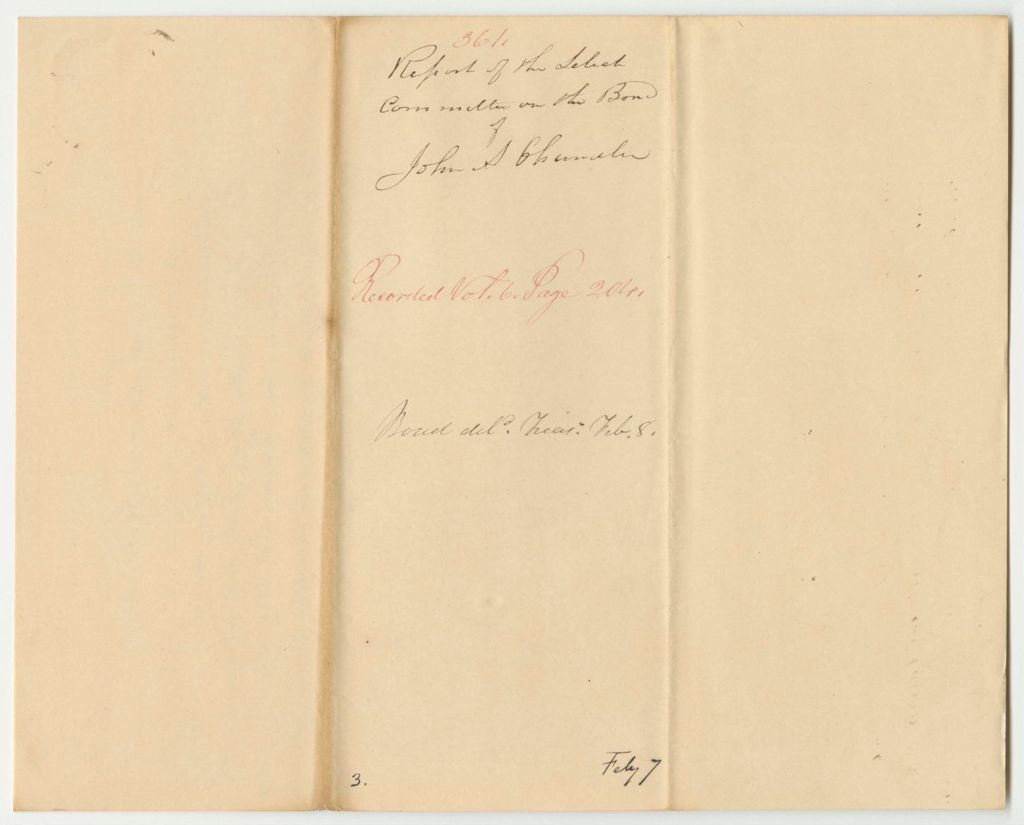 361.
Report of the Select
Committee on the Bond
of
John A Chandler
Recorded Vol. 6. Page 204.
Bond deld. Treasr. Feb. 8.
3.
Feby 7